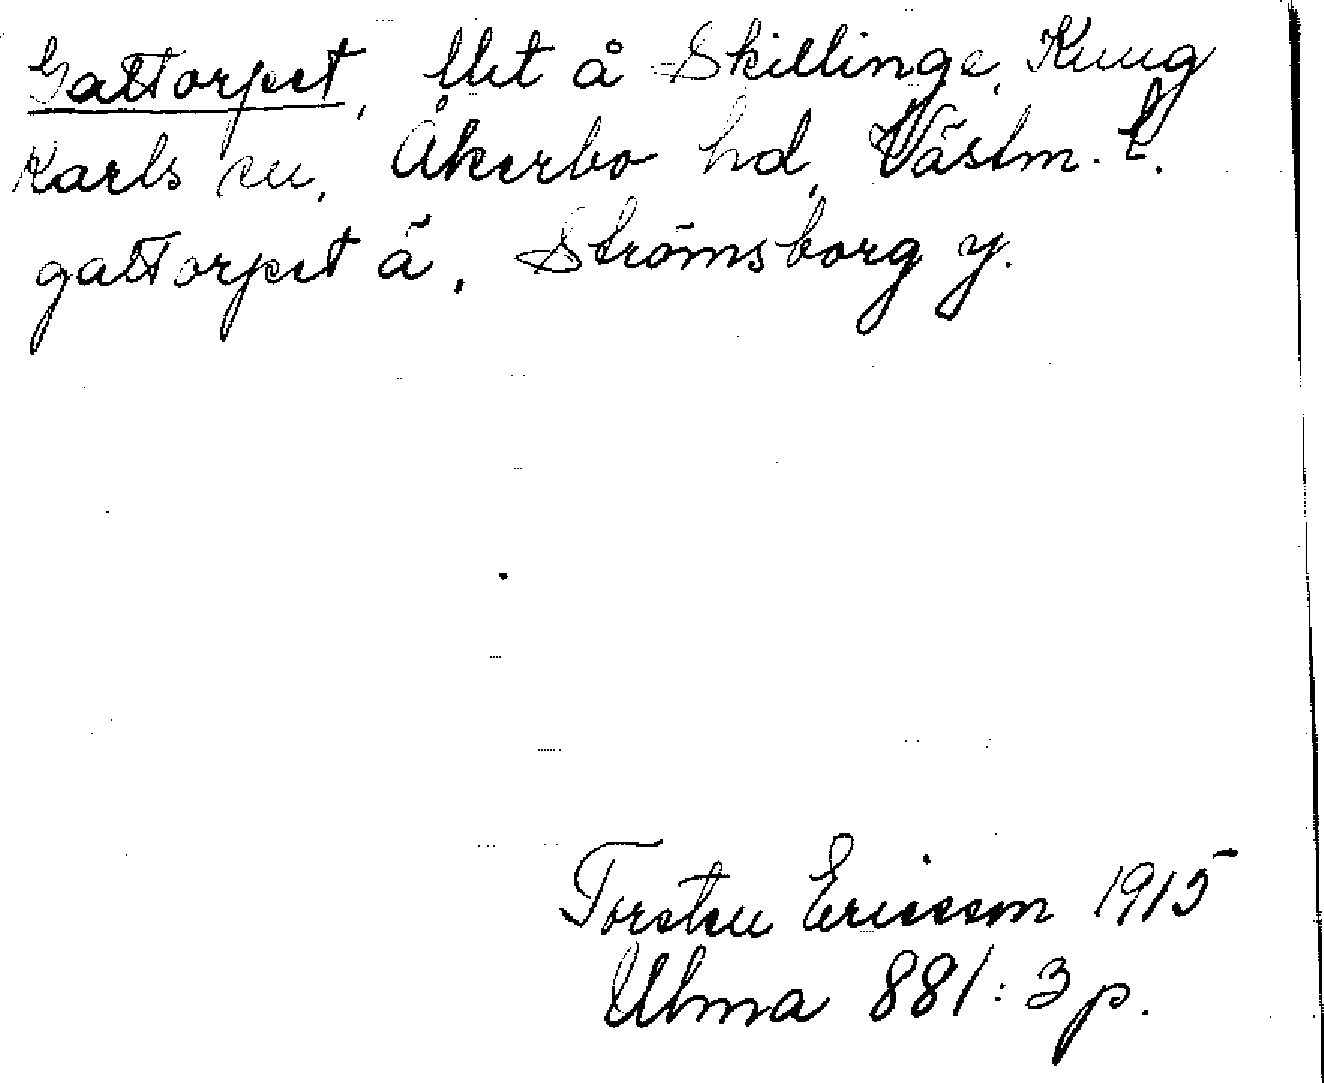 Gattorpet, Utjt å Skillinge, Kung
Karls sn, Åkerbo hd, Västm. l.
gattorpet ä, Strömsborg y.
Torsten Ericsson 1915
Ulma 881:3 p.